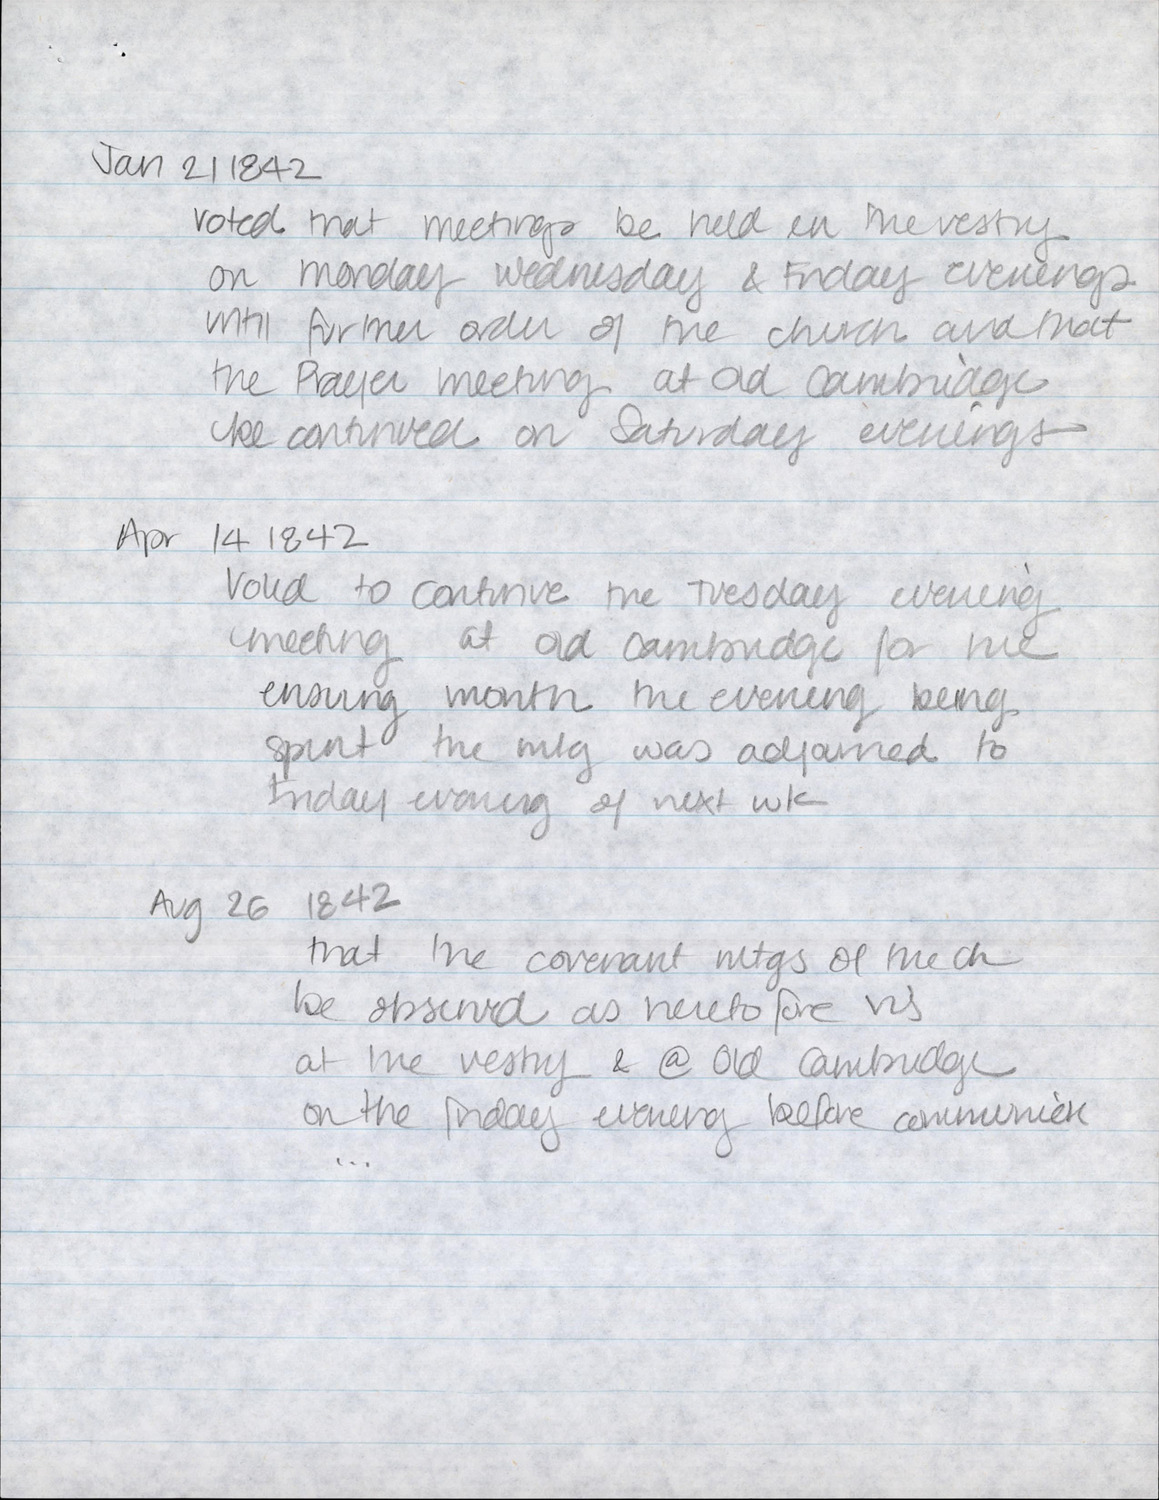 Jan 21 1842
voted that meetings be held in the vestry
on monday wednesday & Friday evenings
until further order of the church and that
the Prayer meeting at old Cambridge
be continued on Saturday evenings
Apr 14 1842
Voted to continue the Tuesday evening
meeting at old Cambridge for the
ensuing month the evening being
spent the mtg was adjourned to
Friday evening of next wk
Aug 26 1842
that the covenant mtgs of the ch
be observed as heretofore viz
at the vestry & @ Old Cambridge
on the friday evening before communion
...